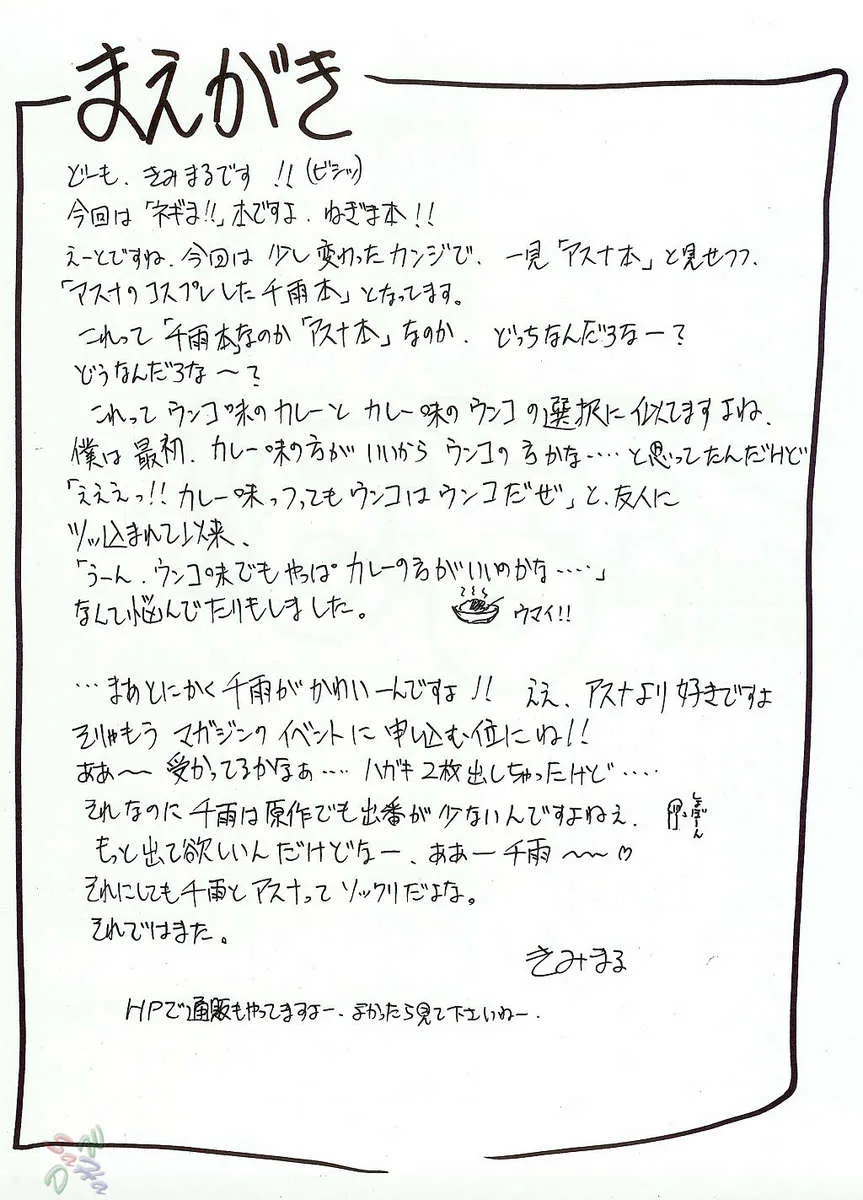 まえがき
どーも、きみまるです!!(ビシッ)
今回は「ネギま!!」本ですよ、ねぎま本!!
えーとですね、今回は少し変わったカンジで、一見「アスナ本」と見せつつ、
「アスナのコスプレした千雨本」となってます。
これって「千雨本」なのか「アスナ本」なのか、どっちなんだろなー?
どうなんだろな〜?
これってウンコ味のカレーとカレー味のウンコの選択に似てますよね、
僕は最初、カレー味の方がいいからウンコの方かな‥‥と思ってたんだけど
「えええっ!!カレー味っつってもウンコはウンコだぜ」と、友人に
ツッ込まれて以来、
「うーん、ウンコ味でもやっぱカレーの方がいいのかな‥‥」
なんて悩んでたりもしました。 ウマイ!!
…まあとにかく千雨がかわいーんですよ!! ええ、アスナより好きですよ
そりゃもうマガジンのイベントに申し込む位にね!!
ああ〜受かってるかなぁ‥‥ハガキ2枚出しちゃったけど‥‥
それなのに千雨は原作でも出番が少ないんですよねぇ、 しょぼーん
もっと出て欲しいんだけどなー、ああー千雨〜〜♡
それにしても千雨とアスナってソックリだよな。
それではまた。
きみまる
HPで通販もやってますよー、よかったら見て下さいねー.